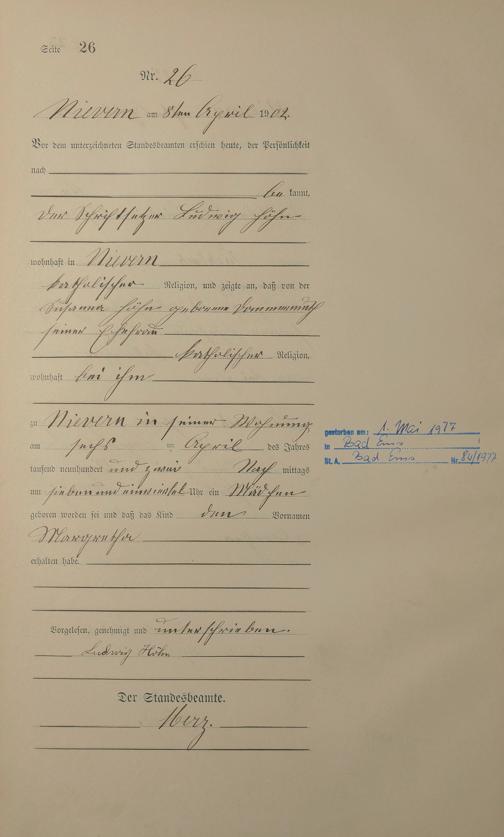 Seite 26
Nr. 26
Nievern am 8ten April 1902.
Vor dem unterzeichneten Standesbeamten erschien heute, der Persönlichkeit
nach
be kannt,
der Schriftsetzer Ludwig Höhn
wohnhaft in Nievern
katholischer Religion, und zeigte an, daß von der
Susanna Höhn geborene Dommermuth
seiner Ehefrau
katholischer Religion,
wohnhaft bei ihm
zu Nievern in seiner Wohnung
am sechs = April des Jahres
tausend neunhundert und zwei Nach mittags
um sieben und einviertel Uhr ein Mädchen
geboren worden sei und daß das Kind den Vornamen
Margretha
erhalten habe.
Vorgelesen, genehmigt und unterschrieben.
Ludwig Höhn
Der Standesbeamte.
Merz.
gestorben am: 1. Mai 1977
in Bad Ems
St. A. Bad Ems Nr. 80/1977